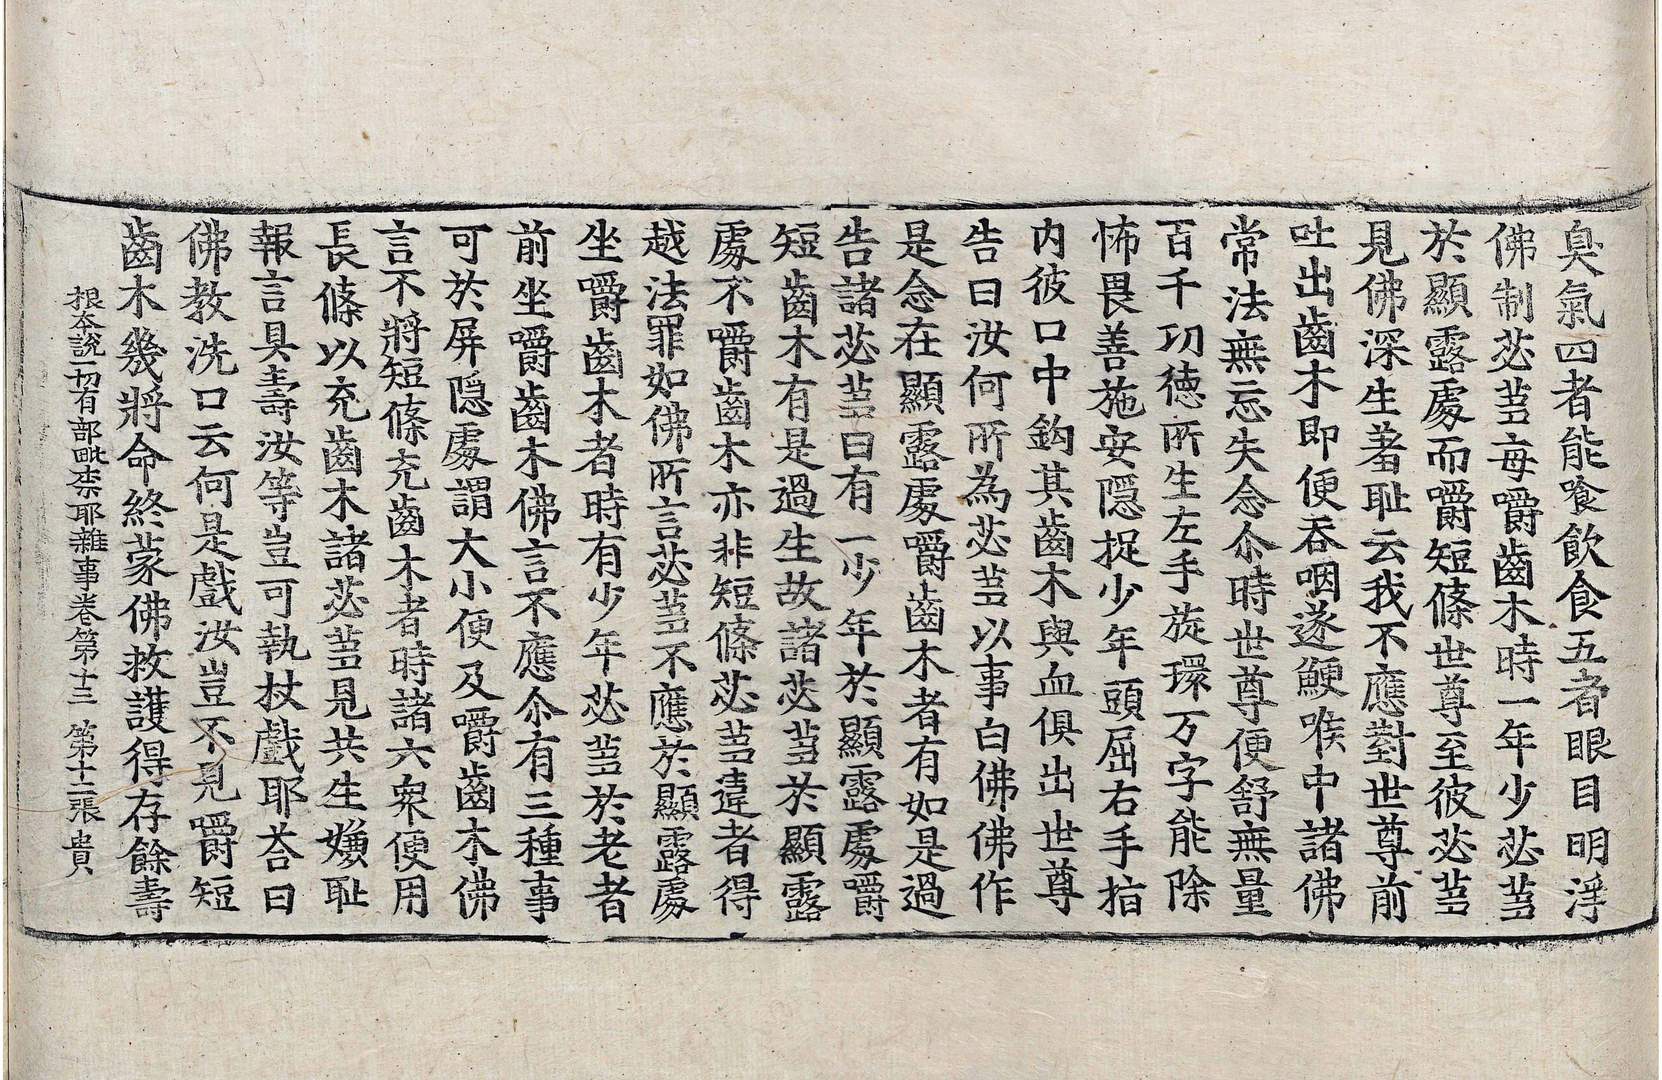 臭氣四者能飡飲食五者眼目明淨
佛制苾芻每嚼齒木時一年少苾芻
於顯露處而嚼短條世尊至彼苾芻
見佛深生羞恥云我不應對世尊前
吐出齒木即便吞咽遂鯁喉中諸佛
常法無忘失念尒時世尊便舒無量
百千功德所生左手旋環万字能除
怖畏善施安隱捉少年頭屈右手指
內彼口中鈎其齒木與血俱出世尊
告曰汝何所為苾芻以事白佛佛作
是念在顯露處嚼齒木者有如是過
告諸苾芻曰有一少年於顯露處嚼
短齒木有是過生故諸苾芻於顯露
處不嚼齒木亦非短條苾芻違者得
越法罪如佛所言苾芻不應於顯露處
坐嚼齒木者時有少年苾芻於老者
前坐嚼齒木佛言不應尒有三種事
可於屏隱處謂大小便及嚼齒木佛
言不將短條充齒木者時諸六衆便用
長條以充齒木諸苾芻見共生嫌恥
報言具壽汝等豈可執杖戲耶荅曰
佛教洗口云何是戲汝豈不見嚼短
齒木幾將命終蒙佛救護得存餘壽
根本說一切有部毗柰耶雜事卷第十三 第十二張 貴